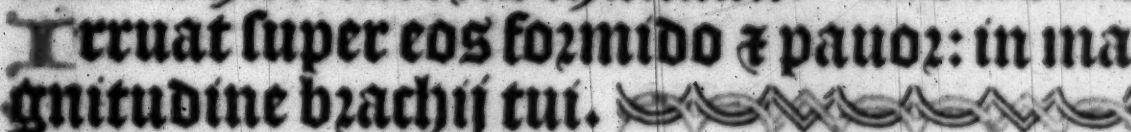 Irruat ſuper eos foꝛmido ⁊ pauoꝛ: in ma
gnitudine bꝛachij tui.